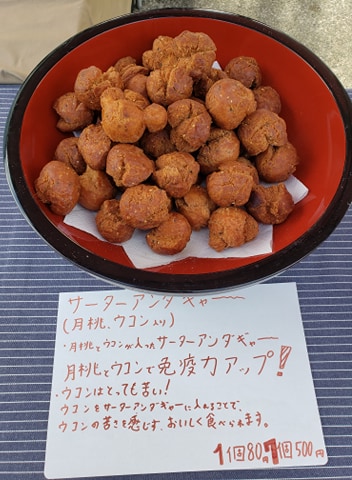 サーターアンダギャー
(月桃、ウコン入り)
・月桃とウコンが入ったサーターアンダギャー
月桃とウコンで免疫力アップ!
・ウコンはとっても苦い!
ウコンをサーターアンダギャーに入れることで、
ウコンの苦さを感じず、おいしく食べられます。
1個80円 7個500円